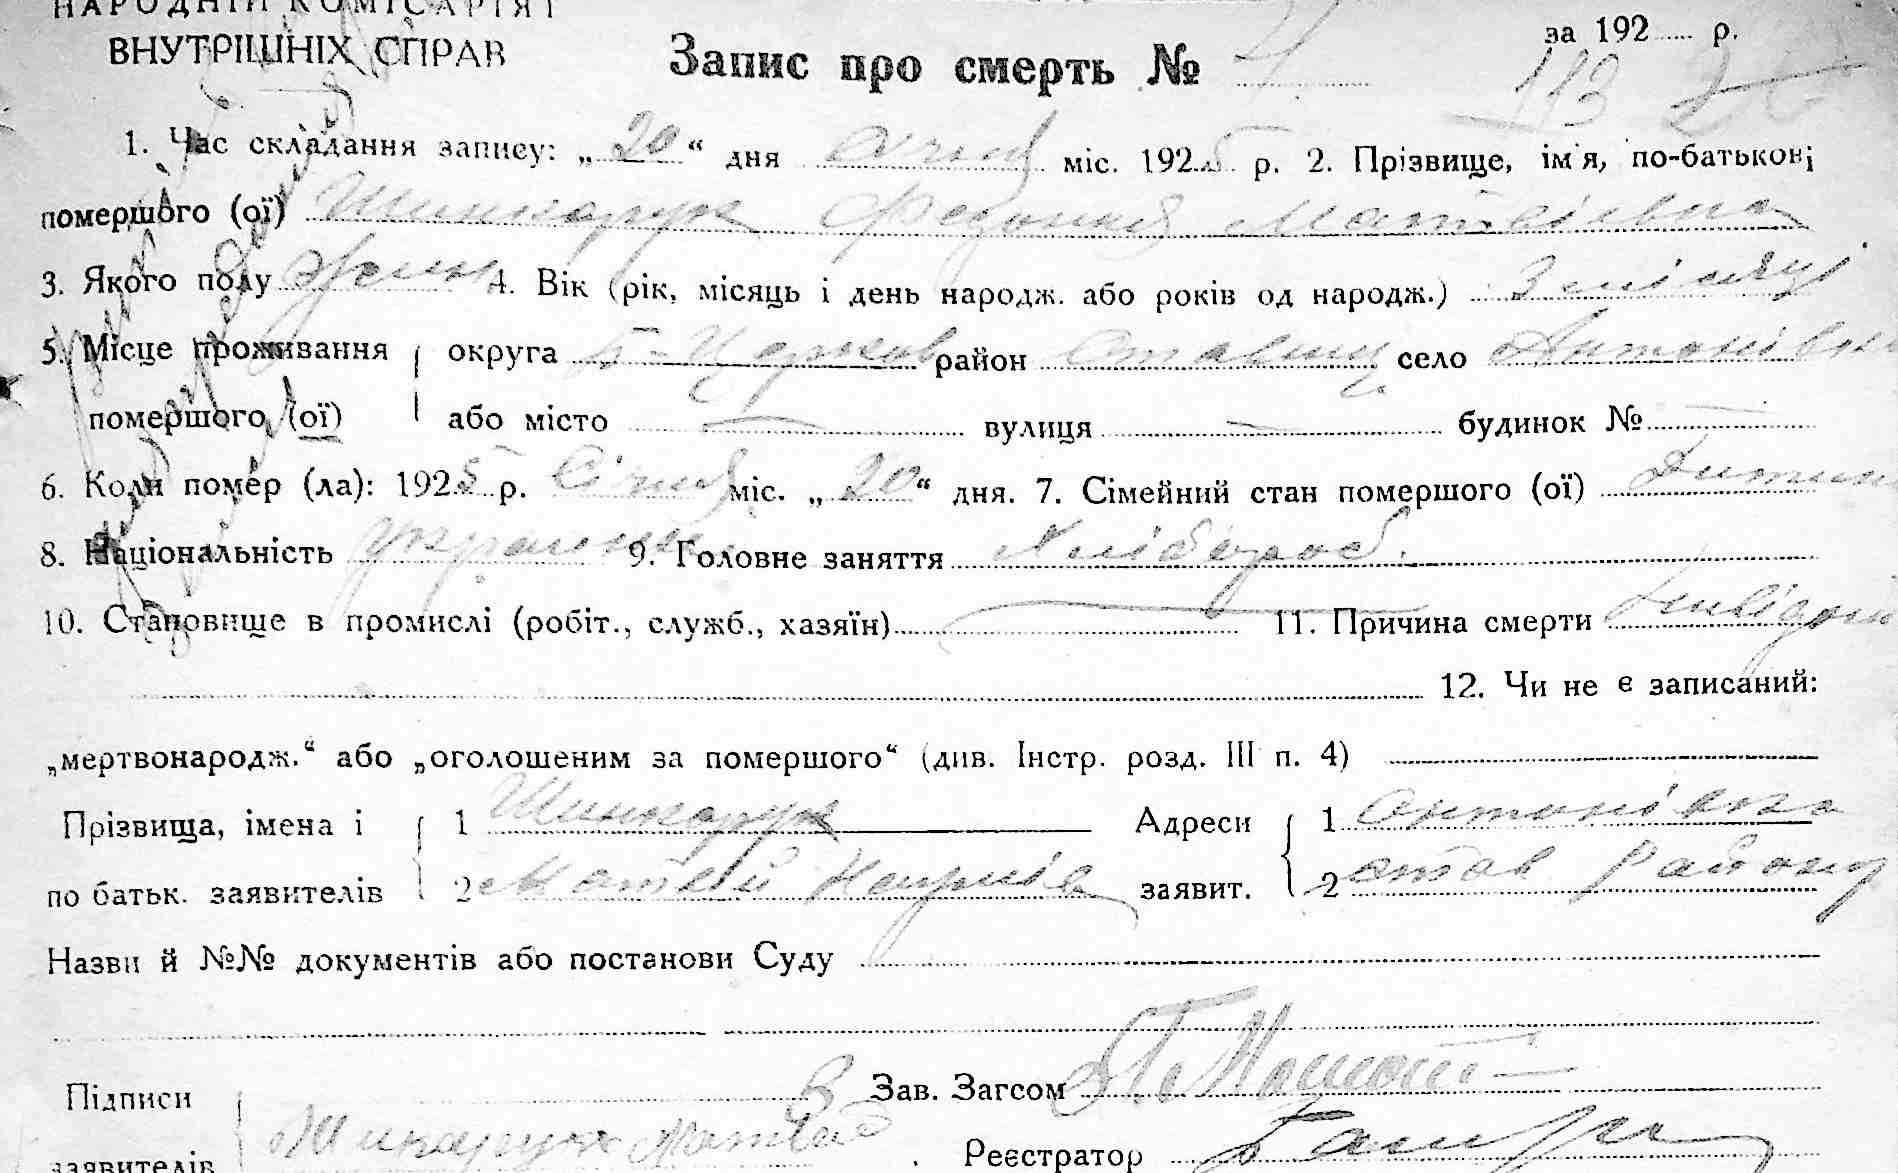 НАРОДНІЙ КОМІСАРІЯТ
ВНУТРІШНІХ СПРАВ
за 192 р.
Запис про смерть № 4
113
1. Час складання запису: „20“ дня Січня міс. 1925 р. 2. Прізвище, ім'я, по-батькові
помершого (ої) Шинкарук Федонія Матвіївна
3. Якого полу жін 4. Вік (рік, місяць і день народж. або років од народж.) 3 місяці
5. Місце проживання округа Б-Церков район Ставищ село Антонівка
помершого (ої) або місто — вулиця — будинок № —
6. Коли помер (ла): 1925 р. Січня міс. „20“ дня. 7. Сімейний стан помершого (ої) Дитина
8. Національність Україн 9. Головне заняття Хлібороб.
10. Становище в промислі (робіт., служб., хазяїн) — 11. Причина смерти
12. Чи не є записаний:
„мертвонародж.“ або „оголошеним за помершого“ (див. Інстр. розд. III п. 4)
Прізвища, імена і 1 Шинкарук Адреси 1 Антонівка
по батьк. заявителів 2 Матвій заявит. 2 Став Району
Назви й №№ документів або постанови Суду
Підписи Зав. Загсом
заявителів Шинкарук Матвій Реєстратор